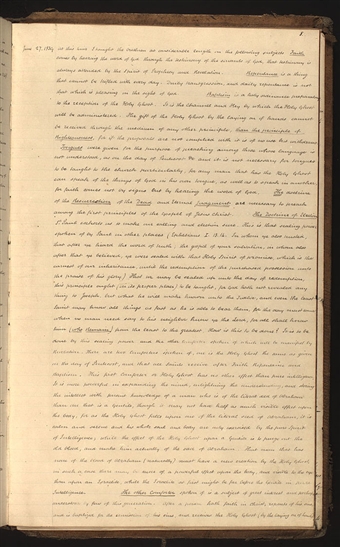 June 27, 1839
at this time I taught the brethren at considerable length on the following subjects. Faith
comes by hearing the word of God through the testimony of the servants of God, that testimony is
always attended by the Spirit of Prophecy and Revelation. Repentance is a thing
that cannot be trifled with every day. Daily transgression, and daily repentance is not
that which is pleasing in the sight of God. Baptism is a holy ordinance preparatory
to the reception of the Holy Ghost. It is the channel and Key by which the Holy Ghost
will be administered. The gift of the Holy Ghost by the laying on of hands cannot
be received through the medium of any other principle, than the principle of
Righteousness, for if the proposals are not complied with it is of no use but withdraws.
Tongues were given for the purpose of preaching among those whose language is
not understood, as on the day of Pentecost &c and it is not necessary for tongues
to be taught to the church particularly, for any man that has the Holy Ghost
can speak of the things of God in his own tongue, as well as to speak in another,
for faith comes not by signs but by hearing the word of God. The doctrine
of the Resurrection of the Dead and Eternal Judgement are necessary to preach
among the first principles of the Gospel of Jesus Christ. The Doctrine of Election
St Paul exhorts us to make our calling and election sure. This is that sealing power
spoken of by Paul in other places
that after ye heard the word of truth, the gospel of your salvation, in whom also
after that ye believed, ye were sealed with that Holy Spirit of promise, which is the
earnest of our inheritance, until the redemption of the purchased possession unto
the praise of his glory. That we may be sealed up unto the day of redemption,
this principle ought, (in its proper place) to be taught, for God hath not revealed any
thing to Joseph but what he will make known unto the Twelve, and even the least
Saint may know all things as fast as he is able to bear them, for the day must come
when no man need say to his neighbor Know ye the Lord, for all shall know
him (who remain) from the least to the greatest. How is this to be done? It is to be
done by this sealing power and the other Comforter spoken of which will be manifest by
Revelation. There are two Comforters spoken of, one is the Holy Ghost the same as given
on the day of Pentecost, and that all Saints receive after Faith, Repentance and
Baptism. This first Comforter or Holy Ghost, has no other effect than pure intelligence.
It is more powerful in expanding the mind, enlightening the understanding, and storing
the intellect with present knowledge of a man who is of the literal seed of Abraham
than one that is a Gentile, though it may not have half as much visible effect upon
the body, for as the Holy Ghost falls upon one of the literal seed of Abraham, it is
calm and serene and his whole soul and body are only exercised by the pure Spirit
of Intelligence, while the effect of the Holy Ghost upon a Gentile is to purge out the
old blood, and make him actually of the seed of Abraham. That man that has
none of the blood of Abraham (naturally) must have a new creation by the Holy Ghost
in such a case there may be more of a powerful effect upon the body, and visible to the eye
than upon an Israelite, while the Israelite at first might be far before the Gentile in pure
Intelligence. The other Comforter spoken of is a subject of great interest and perhaps
understood by few of this generation. After a person hath faith in Christ, repents of his sins
and is baptized for the remission of his sins, and receives the Holy Ghost (by the laying on of hands)